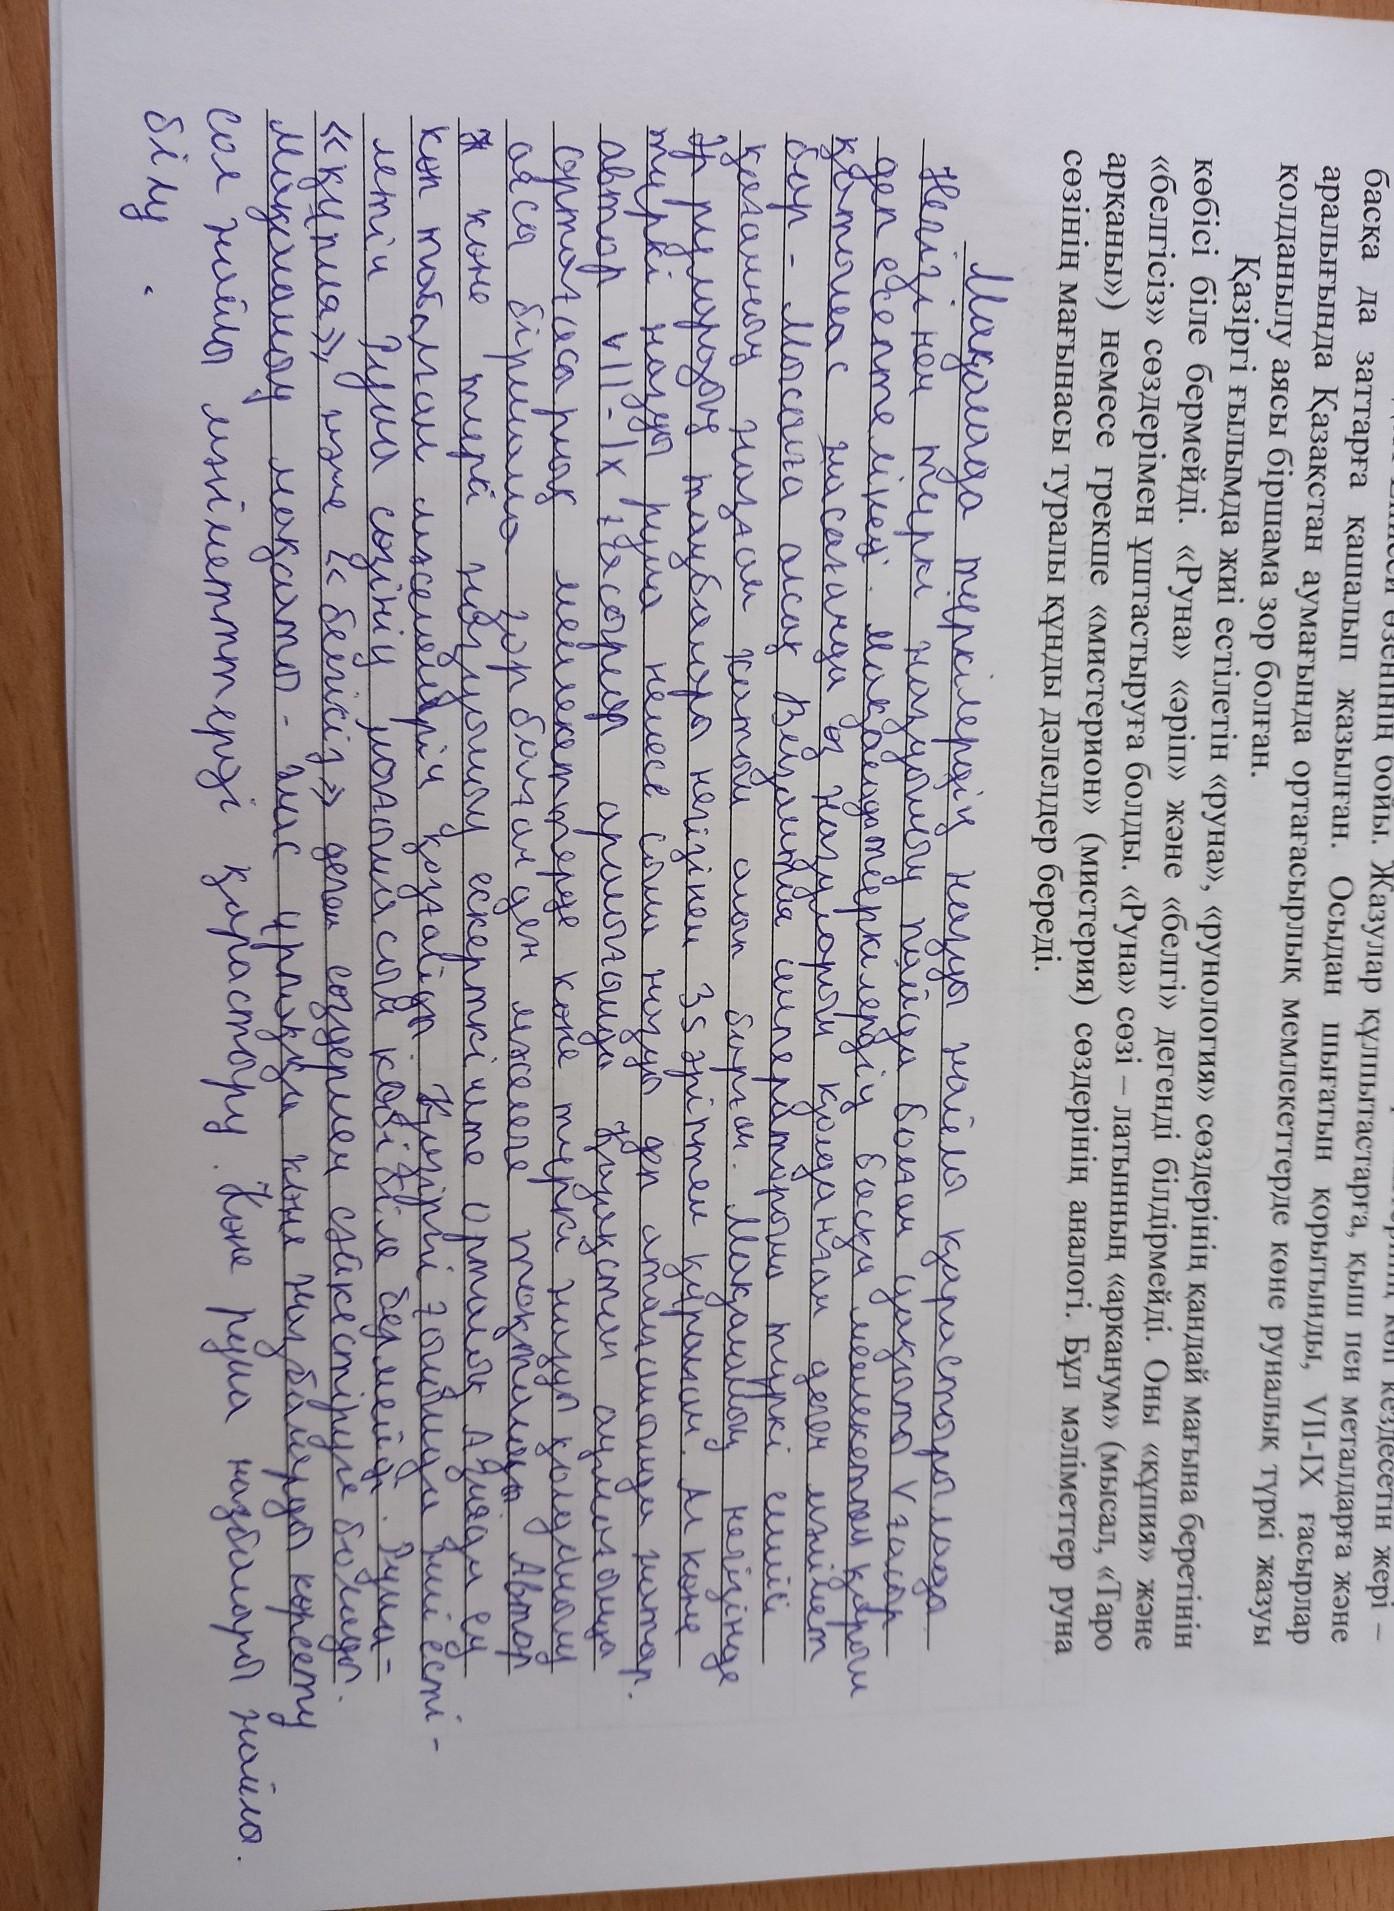 басқа да заттарға қашалып жазылған. Осыдан шығатын қорытынды, VII-IX ғасырлар
аралығында Қазақстан аумағында ортағасырлық мемлекеттерде көне руналық түркі жазуы
қолданылу аясы біршама зор болған.
Қазіргі ғылымда жиі естілетін «руна», «рунология» сөздерінің қандай мағына беретінін
көбісі біле бермейді. «Руна» «әріп» және «белгі» дегенді білдірмейді. Оны «құпия» және
«белгісіз» сөздерімен ұштастыруға болды. «Руна» сөзі – латынның «арканум» (мысал, «Таро
арканы») немесе грекше «мистерион» (мистерия) сөздерінің аналогі. Бұл мәліметтер руна
сөзінің мағынасы туралы құнды дәлелдер береді.
Мақалада түркілердің жазуы жайлы қарастырылады
Негізінен түркі жазуының пайда болған уақыты V ғасыр
деп есептелінеді. Мақалада түркілердің басқа мемлекетпен қарым
қатынас жасағанда өз жазуларын қолданған деген мәлімет
бар - Мысалға алсақ Византия императорына түркі елшісі
қағанның жазған хатын алып барған. Мақаланың негізінде
түркі жазуы руна немесе сына жазу деп аталынады жатар.
автор VII-IX ғасырлар аралығында Қазақстан аумағында
ортағасырлық мемлекеттерде көне түркі жазуы қолданылу
аясы біршама зор болған деген мәлімет тоқталады. Автор
көне түркі жазуының ескерткіште орталық Азиядан ең
көп табылған мәселелерін қозғайды. Қазіргі ғалымда жиі есті-
летін Руна сөзінің мағынасын көбі біле бермейді. Руна-
«құпия», және «белгісіз» деген сөздермен сәйкестіруге болады.
Мақаланың мақсаты - жас ұрпаққа көне жазбаларды көрсету
сол жайлы мәліметтерді қарастыру. Көне руна жазбалары жайлы.
білу.